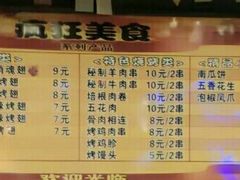 疯狂美食
系列产品
类> <特色烧烤类> <精品
魂翅 9元 秘制羊肉串 10元/2串 南瓜饼
翅 8元 秘制牛肉串 10元/2串 五香花生
烤翅 8元 培根肉卷 10元/2串 泡椒凤爪
烤翅 8元 五花肉 10元/2串
烤翅 8元 骨肉相连 8元/2串
烤翅 8元 烤鸡肉串 8元/2串
烤翅 8元 烤鸡胗 8元/2串
烤翅 8元 烤馒头 5元/2串
欢迎光临